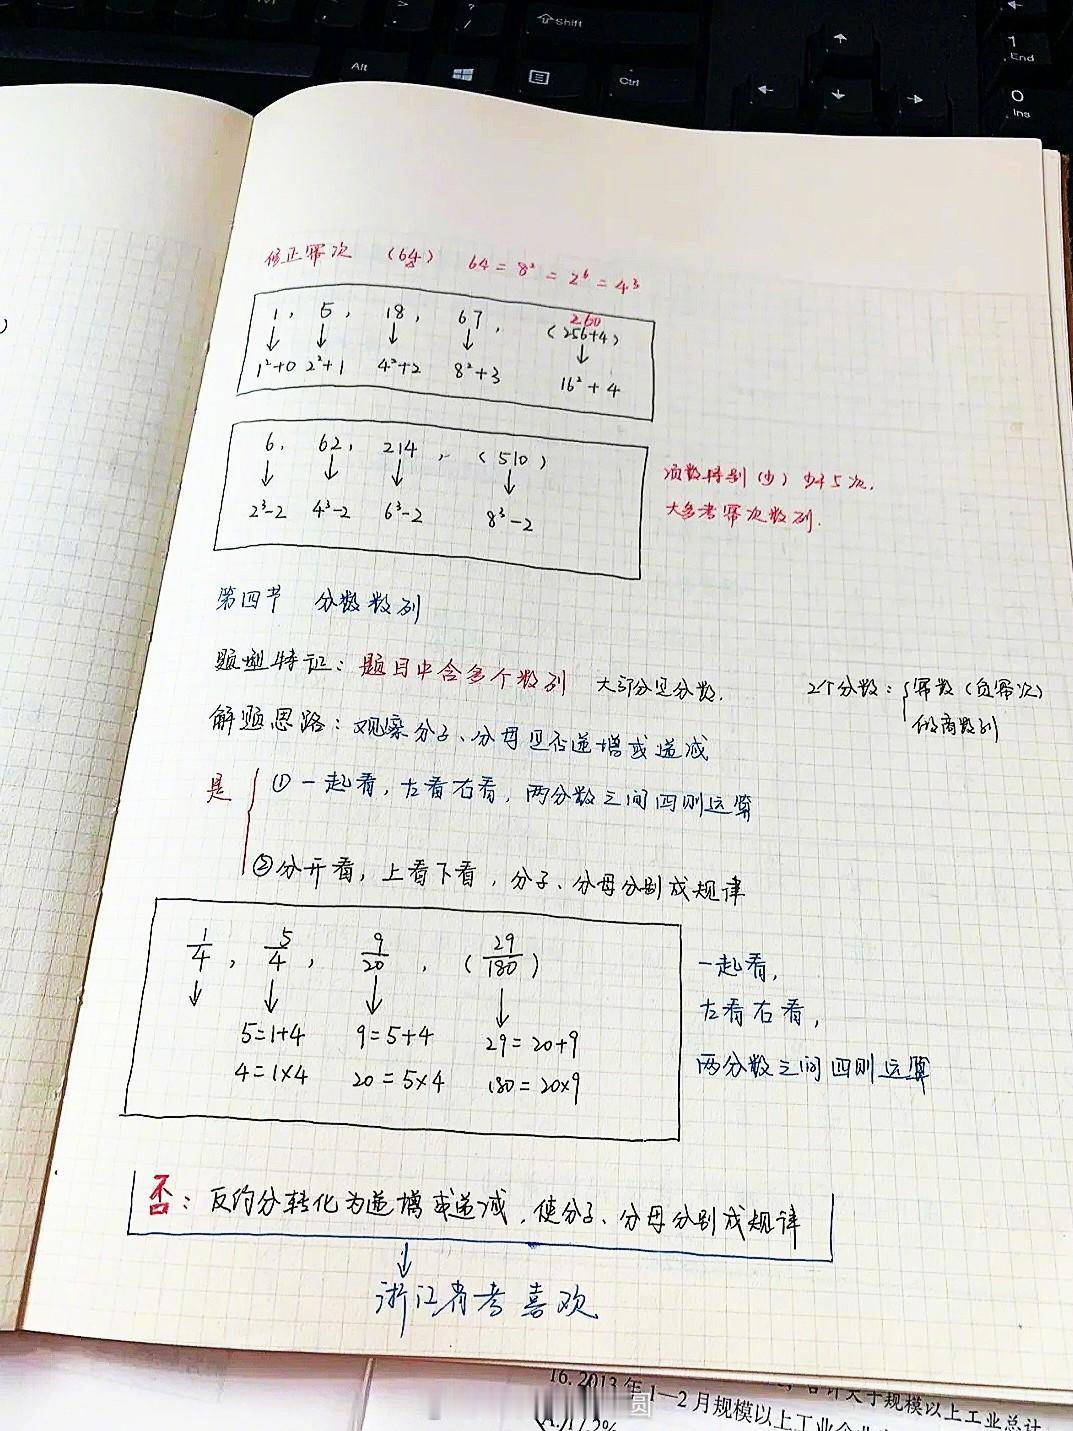 Shift
Alt
Ctrl
1
End
0
Ins
修正幂次 (64) 64 = 8² = 2⁶ = 4³
1, 5, 18, 67, 260
(256+4)
↓ ↓ ↓ ↓ ↓
1²+0 2²+1 4²+2 8²+3 16²+4
6, 62, 214, (510)
↓ ↓ ↓ ↓
2³-2 4³-2 6³-2 8³-2
项数特别(少) 少于5次.
大多考幂次数列.
第四节 分数数列
题型特征: 题目中含多个数列 大部分是分数.
2个分数: { 幂数 (负幂次)
做商数列
解题思路: 观察分子、分母是否递增或递减
是 ① 一起看, 左看右看, 两分数之间四则运算
② 分开看, 上看下看, 分子、分母分别成规律
1/4, 5/4, 9/20, (29/180)
↓ ↓ ↓ ↓
5=1+4 9=5+4 29=20+9
4=1×4 20=5×4 180=20×9
一起看,
左看右看,
两分数之间四则运算
否: 反约分转化为递增或递减, 使分子、分母分别成规律
↓
浙江省考喜欢
16. 2013年1—2月规模以上工业企业